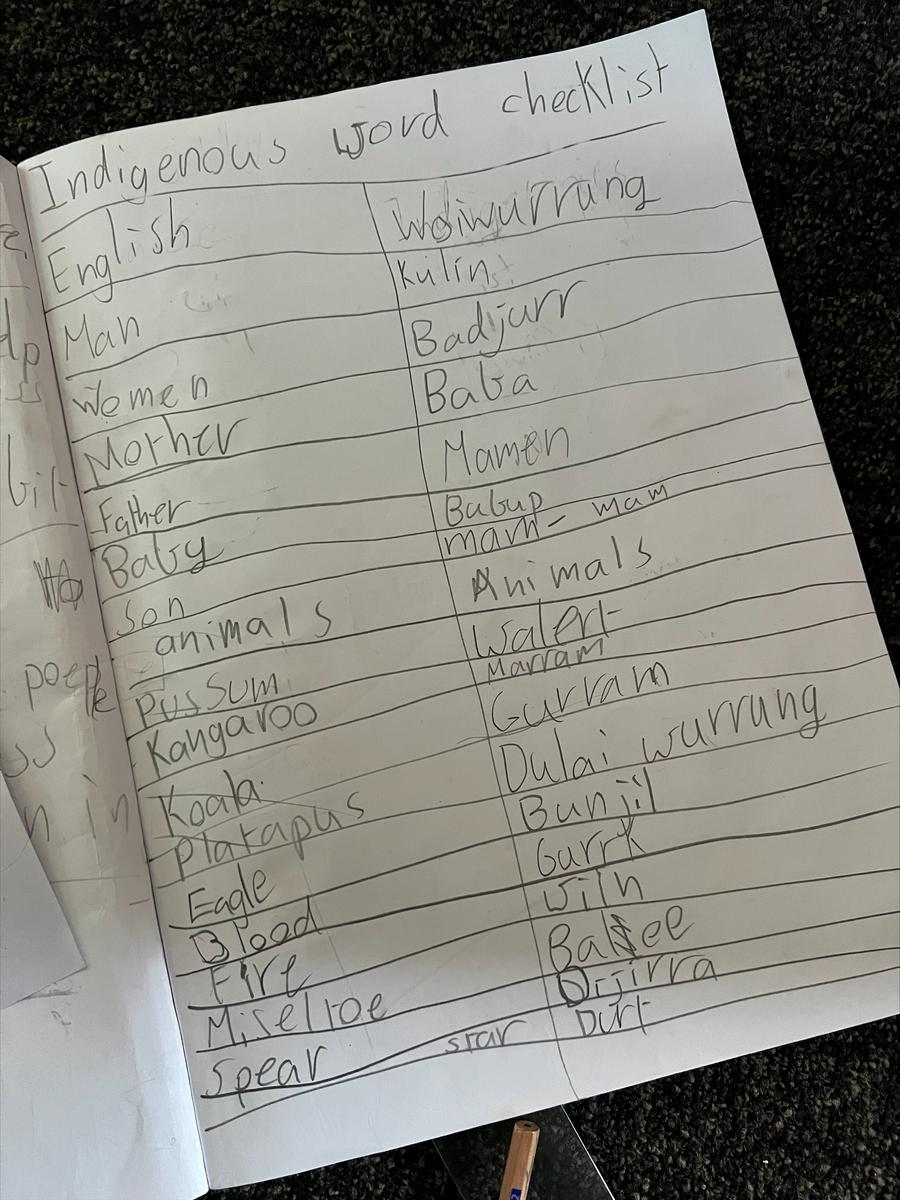 Indigenous word checklist
English Woiwurrung
Man Kulin
Women Badjurr
Mother Baba
Father Mamen
Baby Babup
Son mam-mam
animals Animals
Pussum Walert
Kangaroo Marram
Koala Gurram
Platapus Dulai wurrung
Eagle Bunjil
Blood Gurrk
Fire Wiln
Miseltoe Balee
Spear Djirra
star Durt
poeple
ss
n in